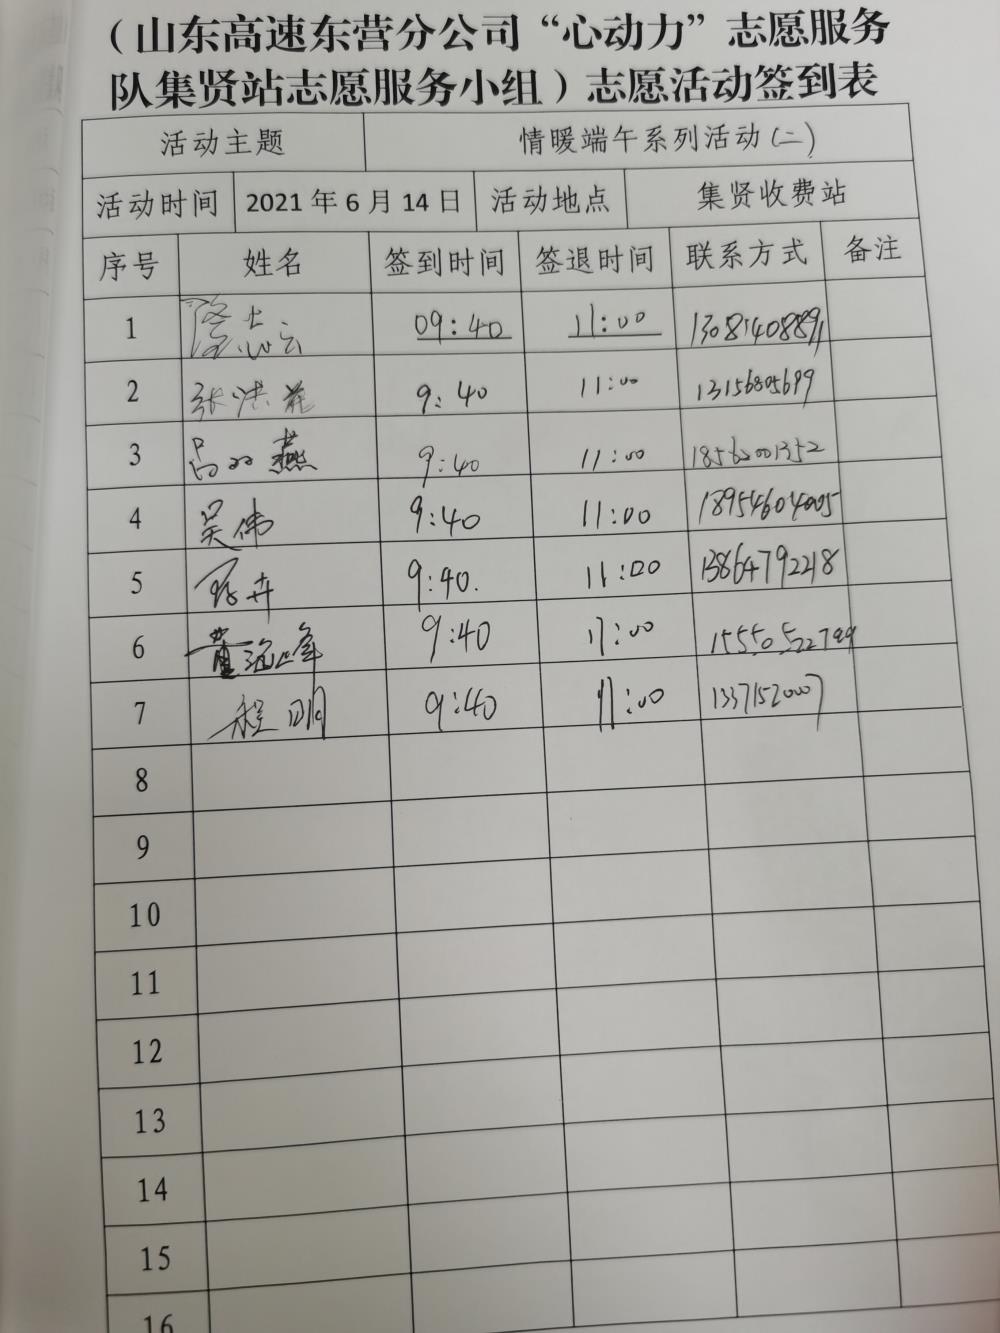 （山东高速东营分公司“心动力”志愿服务
队集贤站志愿服务小组）志愿活动签到表
活动主题 情暖端午系列活动(二)
活动时间 2021年6月14日 活动地点 集贤收费站
序号 姓名 签到时间 签退时间 联系方式 备注
1 09:40 11:00
2 张洪花 9:40 11:00 13156805699
3 吕双燕 9:40 11:00
4 吴伟 9:40 11:00 18954604005
5 9:40. 11:00 13864792218
6 董海峰 9:40 11:00
7 程明 9:40 11:00 13371520007
8
9
10
11
12
13
14
15
16